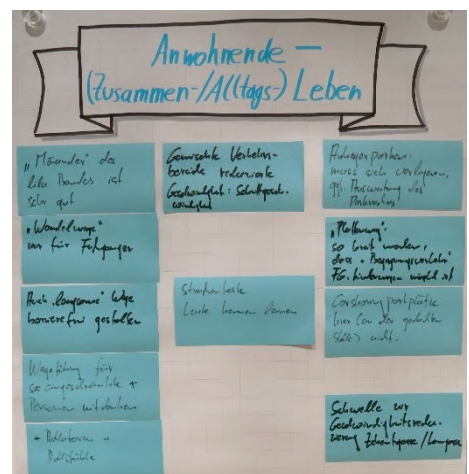 Anwohnende –
(Zusammen-/Alltags-) Leben
"Mäander" des
lila Bandes ist
sehr gut
"Wandelwege"
nur für Fußgänger
Auch "langsame" Wege
barrierefrei gestalten
Wegeführung für
seheingeschränkte
Personen mitdenken
+ Rollatoren +
Rollstühle
Gemischte Verkehrs-
bereiche
Geschwindigkeit: Schrittgesch-
windigkeit
Straßenfeste
Leute kennen lernen
muss sich verlagern,
ggf. Ausweitung des
so breit machen,
dass "Begegnungsverkehr"
möglich ist
Carsharingparkplätze
hier (an der gedachten
Stelle) nicht.
Schwelle zur
Geschwindigkeitsreduz-
ierung